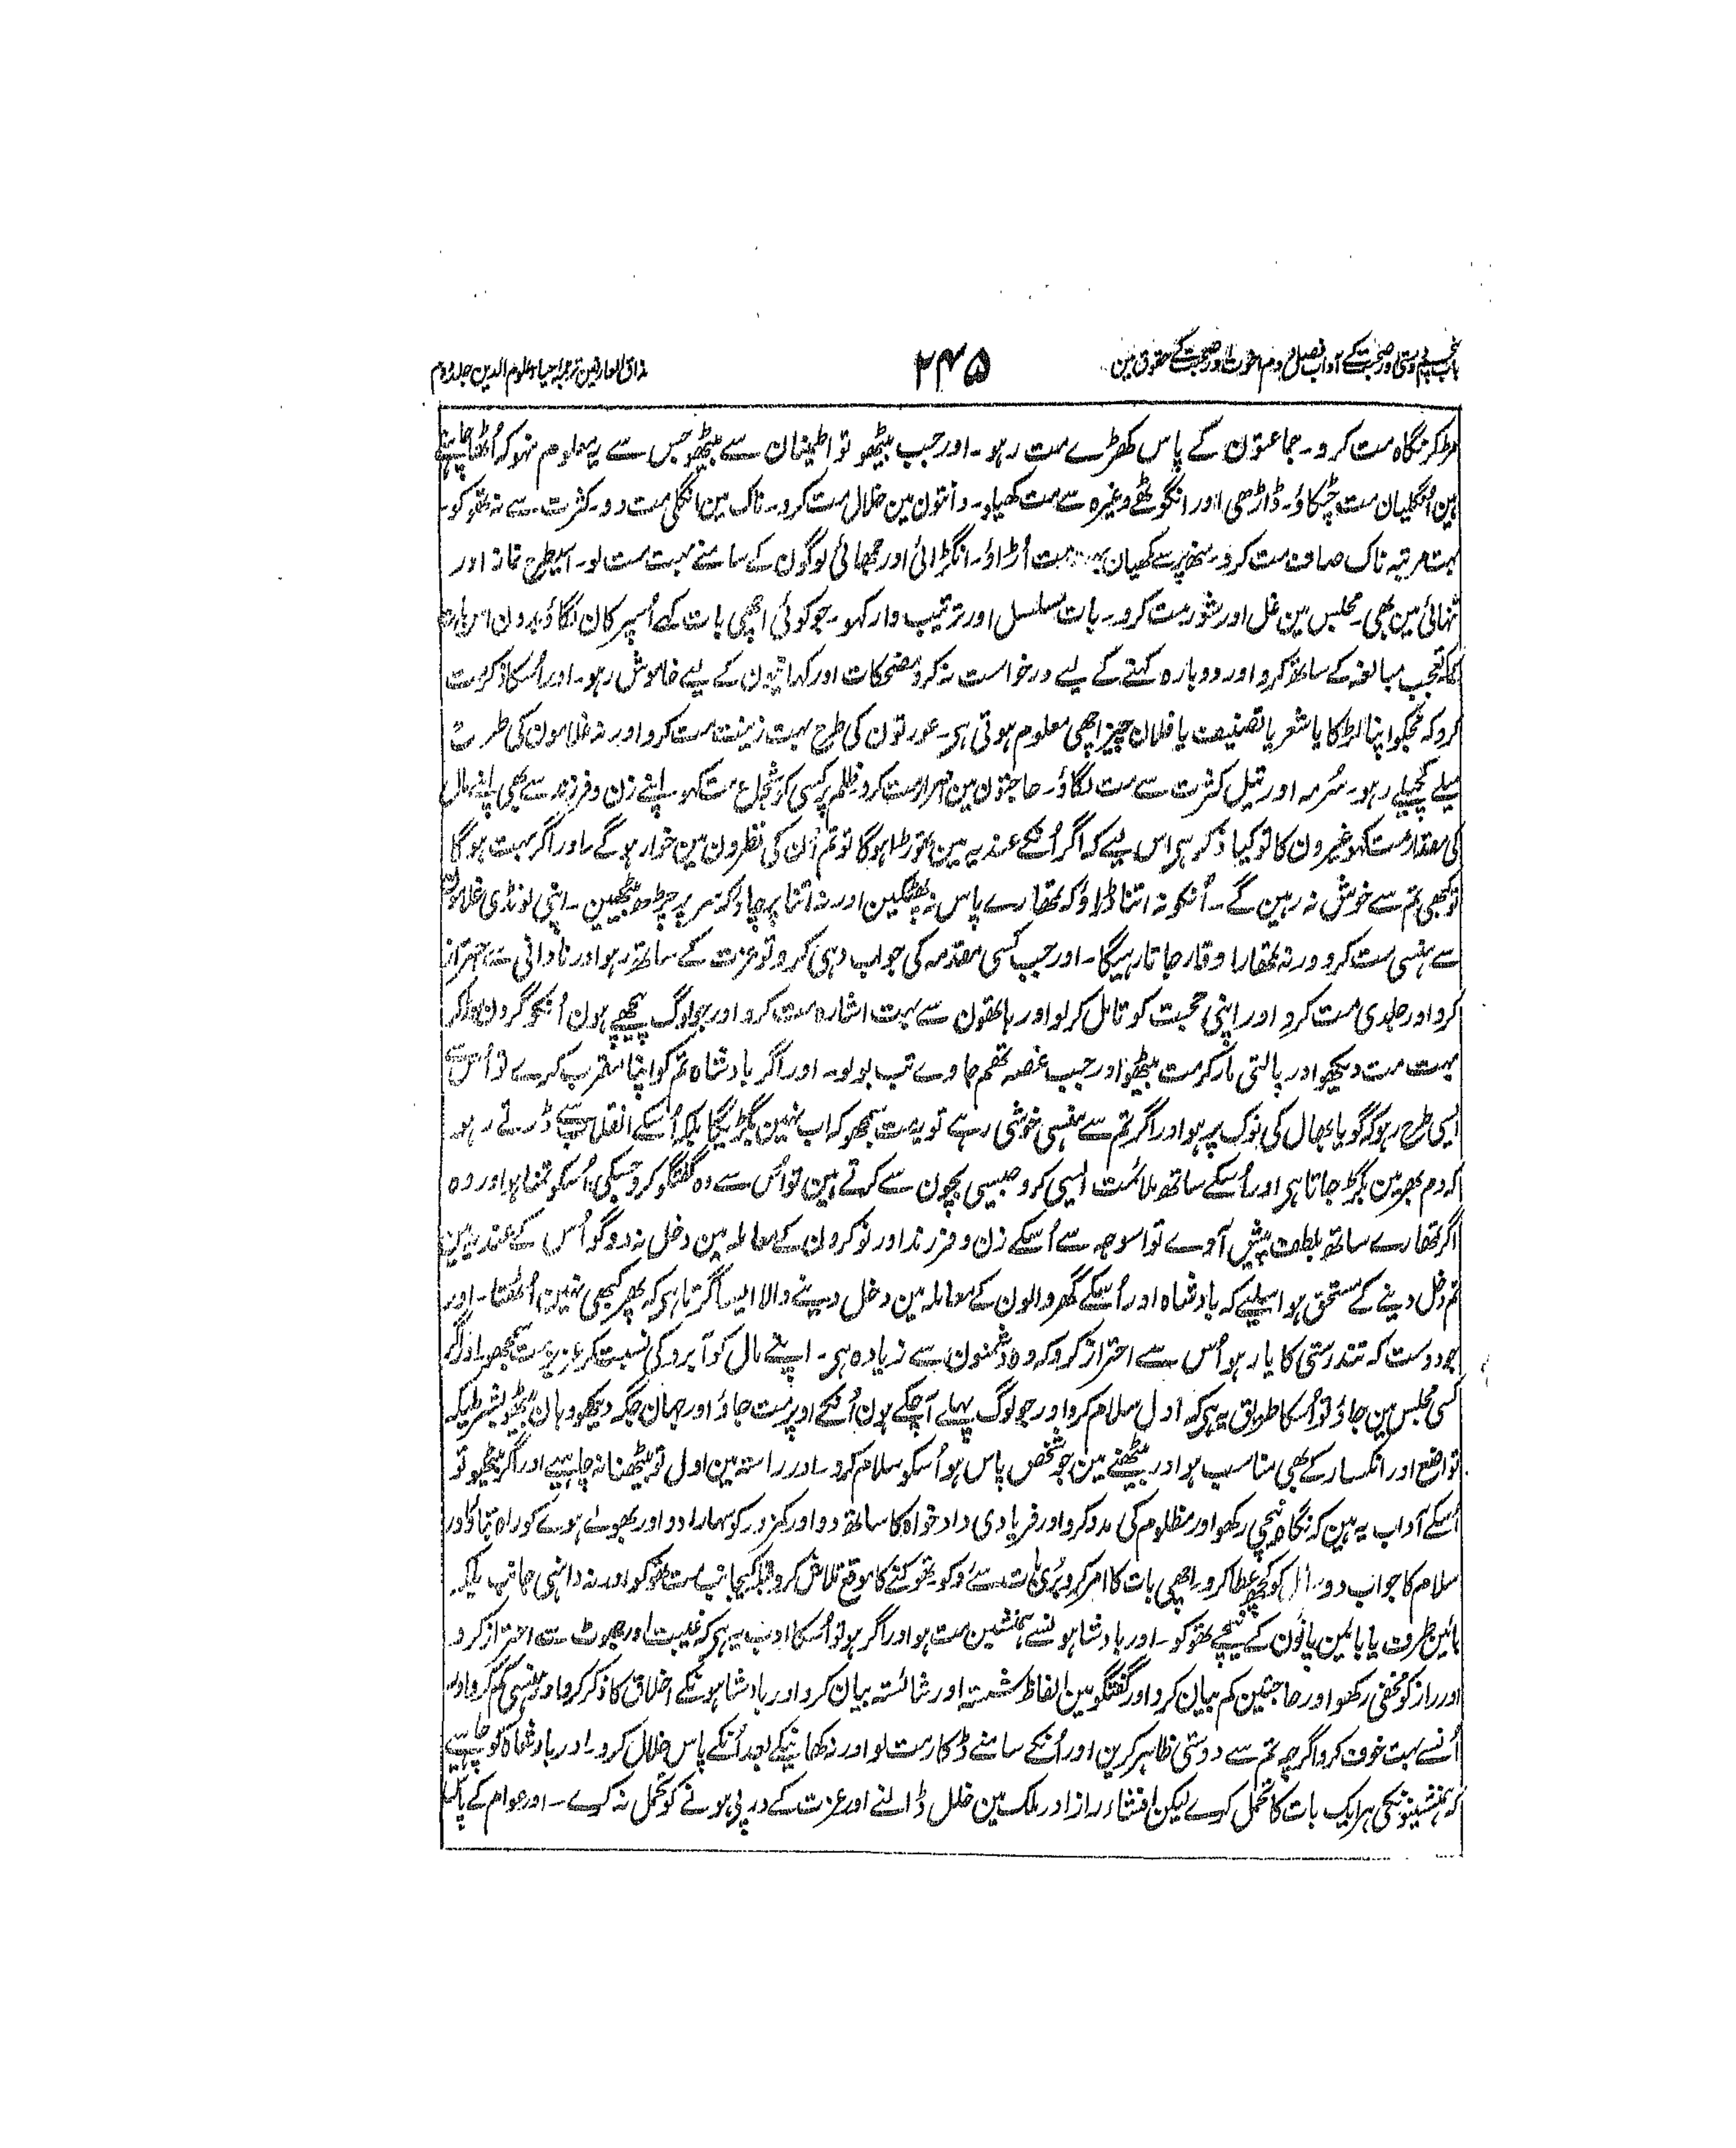 باب پنجم دوستی اور صحبت کے آداب فصل دوم اخوت اور صحبت کے حقوق مین
۲۴۵
مذاق العارفین ترجمہ احیاء علوم الدین جلد دوم
مڑکر نگاہ مت کرو۔ جماعتون کے پاس کھڑے مت رہو۔ اور جب بیٹھو تو اطمینان سے بیٹھو جس سے یہ معلوم نہو کہ اُٹھا چاہتے
ہین اُنگلیان مت چٹکاؤ۔ ڈاڑھی اور انگوٹھے وغیرہ سے مت کھیلو۔ دانتون مین خلال مت کرو۔ ناک مین انگلی مت دو۔ کثرت سے نہ تھوکو۔
بہت مرتبہ ناک صاف مت کرو۔ منھ پر سے مکھیان بہت مت اُڑاؤ۔ انگڑائی اور جمھائی لوگون کے سامنے بہت مت لو۔ اسیطرح نماز اور
تنہائی مین بھی۔ مجلس مین غل اور شور مت کرو۔ بات مسلسل اور ترتیب وار کہو۔ جو کوئی اچھی بات کہے اُسپر کان لگاؤ بدون اس بات
کے کہ تعجب مبالغہ کے ساتھ کرو اور دوبارہ کہنے کے لیے درخواست نہ کرو مضحکات اور کہانیون کے لیے خاموش رہو۔ اور اُسکا ذکر مت
کرو کہ مجکو اپنا لڑکا یا شعر یا تصنیف یا فلان چیز اچھی معلوم ہوتی ہی۔ عورتون کی طرح بہت زینت مت کرو اور نہ غلامون کی طرح
میلے کچیلے رہو۔ سُرمہ اور تیل کثرت سے مت لگاؤ۔ حاجتون مین اصرار مت کرو ظلم پر کسی کو شجاع مت کہو۔ اپنے زن و فرزند سے بھی اپنے مال
کی مقدار مت کہو غیرون کا تو کیا ذکر ہی اس لیے کہ اگر اُنکے عندیہ مین تھوڑا ہوگا تو تم اُن کی نظرون مین خوار ہوگے۔ اور اگر بہت ہوگا
تو کبھی تم سے خوش نہ رہین گے۔ اُنکو نہ اتنا ڈراؤ کہ تمھارے پاس نہ پھٹکین اور نہ اتنا پرچاؤ کہ سر پر چڑھ بیٹھین۔ اپنی لونڈی غلامون
سے ہنسی مت کرو ورنہ تمھارا وقار جاتا رہیگا۔ اور جب کسی مقدمہ کی جواب دہی کرو تو عزت کے ساتھ رہو اور نادانی سے احتراز
کرو اور جلدی مت کرو اور اپنی حجت کو تامل کر لو اور ہاتھون سے بہت اشارہ مت کرو اور جو لوگ پیچھے ہون اُنکو گردن موڑ کر
بہت مت دیکھو اور پالتی مارکر مت بیٹھو اور جب غصہ تھم جاوے تب بولو۔ اور اگر بادشاہ تم کو اپنا مقرب کرے تو اُس سے
ایسی طرح رہو کہ گویا بھال کی نوک پر ہو اور اگر تم سے ہنسی خوشی رہے تو یہ مت سمجھو کہ اب نہین بگڑیگا بلکہ اُسکے انقلاب سے ڈرتے رہو
کہ دم بھر مین بگڑ جاتا ہی اور اُسکے ساتھ ملائمت ایسی کرو جیسی بچون سے کرتے ہین تو اُس سے وہ گفتگو کرو جسکی اُسکو تمنا ہو اور وہ
اگر تمھارے ساتھ بلطف پیش آوے تو اسوجہ سے اُسکے زن و فرزند اور نوکرون کے معاملہ مین دخل نہ دو گو اُس کے عندیہ مین
تم دخل دینے کے مستحق ہو اسلیے کہ بادشاہ اور اُسکے گھر والون کے معاملہ مین دخل دینے والا ایسا گرتا ہی کہ پھر کبھی نہین اُٹھتا۔ اور
جو دوست کہ تندرستی کا یار ہو اُس سے احتراز کرو کہ وہ دشمنون سے زیادہ ہی۔ اپنے مال کو آبرو کی نسبت کر عزیز مت سمجھو۔ اور اگر
کسی مجلس مین جاؤ تو اُسکا طریق یہ ہی کہ اول سلام کرو اور جو لوگ پہلے آچکے ہون اُنکے اوپر مت جاؤ اور جہان جگہ دیکھو وہان بیٹھو بشرطیکہ
تواضع اور انکسار کے بھی مناسب ہو اور بیٹھنے مین جو شخص پاس ہو اُسکو سلام کرو۔ اور راستہ مین اول تو بیٹھنا نہ چاہیے اور اگر بیٹھو تو
اُسکے آداب یہ ہین کہ نگاہ نیچی رکھو اور مظلوم کی مدد کرو اور فریادی داد خواہ کا ساتھ دو اور کمزور کو سہارا دو اور بھولے ہوے کو راہ بتاؤ اور
سلام کا جواب دو۔ سائل کو کچھ عطا کرو۔ اچھی بات کا امر کرو بُری بات سے روکو۔ تھوکنے کا موقع تلاش کرو قبلہ کیجانب مت تھوکو اور نہ داہنی جانب بلکہ
بائین طرف یا بائین پانون کے نیچے تھوکو۔ اور بادشاہونسے ہمنشین مت ہو اور اگر ہو تو اُسکا ادب یہ ہی کہ غیبت اور جھوٹ سے احتراز کرو
اور راز کو مخفی رکھو اور حاجتین کم بیان کرو اور گفتگو مین الفاظ شستہ اور شائستہ بیان کرو اور بادشاہونکے اخلاق کا ذکر کرو اور ہنسی کم کرو اور
اُنسے بہت خوف کرو اگرچہ تم سے دوستی ظاہر کرین اور اُنکے سامنے ڈکار مت لو اور نہ کھانیکے بعد اُنکے پاس خلال کرو۔ اور بادشاہ کو چاہیے
کہ ہمنشینونکی ہر ایک بات کا تحمل کرے لیکن افشاء راز اور ملک مین خلل ڈالنے اور عزت کے درپی ہونے کو تحمل نہ کرے۔ اور عوام کے پاس